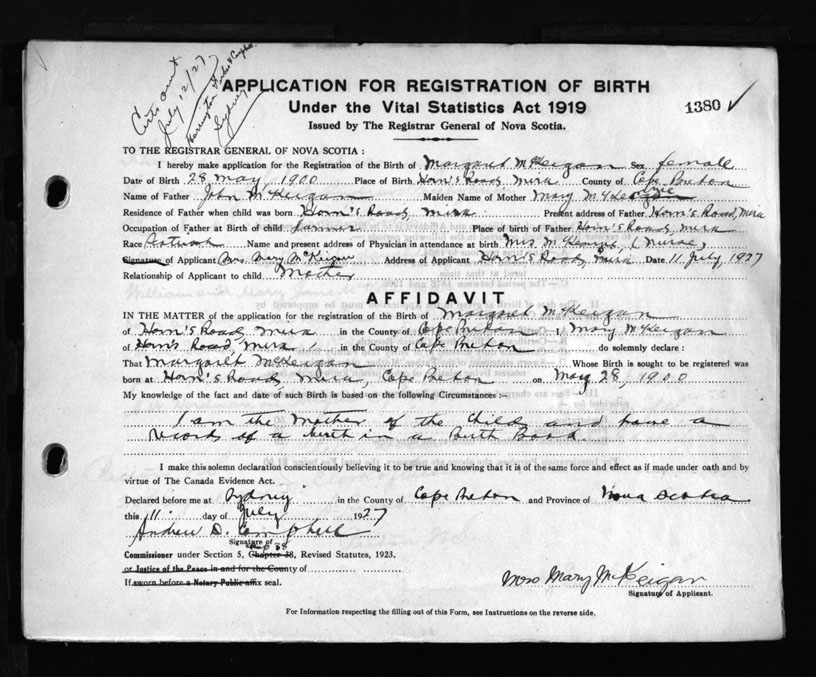 Cert. sent
July 12/27
Sydney
APPLICATION FOR REGISTRATION OF BIRTH
Under the Vital Statistics Act 1919
1380 ✓
Issued by The Registrar General of Nova Scotia.
TO THE REGISTRAR GENERAL OF NOVA SCOTIA :
I hereby make application for the Registration of the Birth of Margaret McKeigan Sex female
Date of Birth 28 May, 1900 Place of Birth Horn's Road, Mira County of Cape Breton
Name of Father John McKeigan Maiden Name of Mother Mary
Residence of Father when child was born Horn's Road, Mira Present address of Father Horn's Road, Mira
Occupation of Father at Birth of child farmer Place of birth of Father Horn's Road, Mira
Race Name and present address of Physician in attendance at birth Mrs. (Nurse)
Signature of Applicant Mrs. Mary McKeigan Address of Applicant Horn's Road, Mira Date 11 July, 1927
Relationship of Applicant to child Mother
AFFIDAVIT
IN THE MATTER of the application for the registration of the Birth of Margaret McKeigan
of Horn's Road, Mira in the County of Cape Breton I, Mary McKeigan
of Horn's Road, Mira, in the County of Cape Breton do solemnly declare :
That Margaret McKeigan Whose Birth is sought to be registered was
born at Horn's Road, Mira, Cape Breton on May 28, 1900
My knowledge of the fact and date of such Birth is based on the following Circumstances :-
I am the Mother of the child and have a
record of a birth in a Birth Book.
I make this solemn declaration conscientiously believing it to be true and knowing that it is of the same force and effect as if made under oath and by
virtue of The Canada Evidence Act.
Declared before me at Sydney in the County of Cape Breton and Province of Nova Scotia
this 11 day of July 1927
Andrew D. Campbell
Signature of
Commissioner under Section 5, Chapter 38, Revised Statutes, 1923.
or Justice of the Peace in and for the County of
If sworn before a Notary Public affix seal.
Mrs Mary McKeigan
Signature of Applicant.
For Information respecting the filling out of this Form, see Instructions on the reverse side.